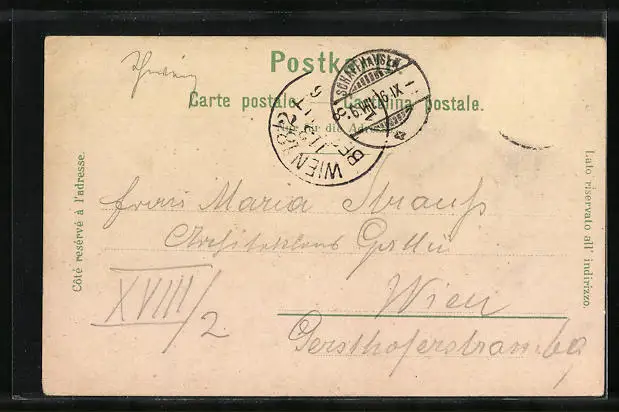 Postkarte
Carte postale. — Cartolina postale.
Nur für die Adresse
SCHAFFHAUSEN
WIEN 18/2
Côté resérvé à l'adresse.
Lato riservato all' indirizzo.
Frau Maria Strauß
Architektens Gattin
Wien
XVIII/2
Gersthoferstrasse